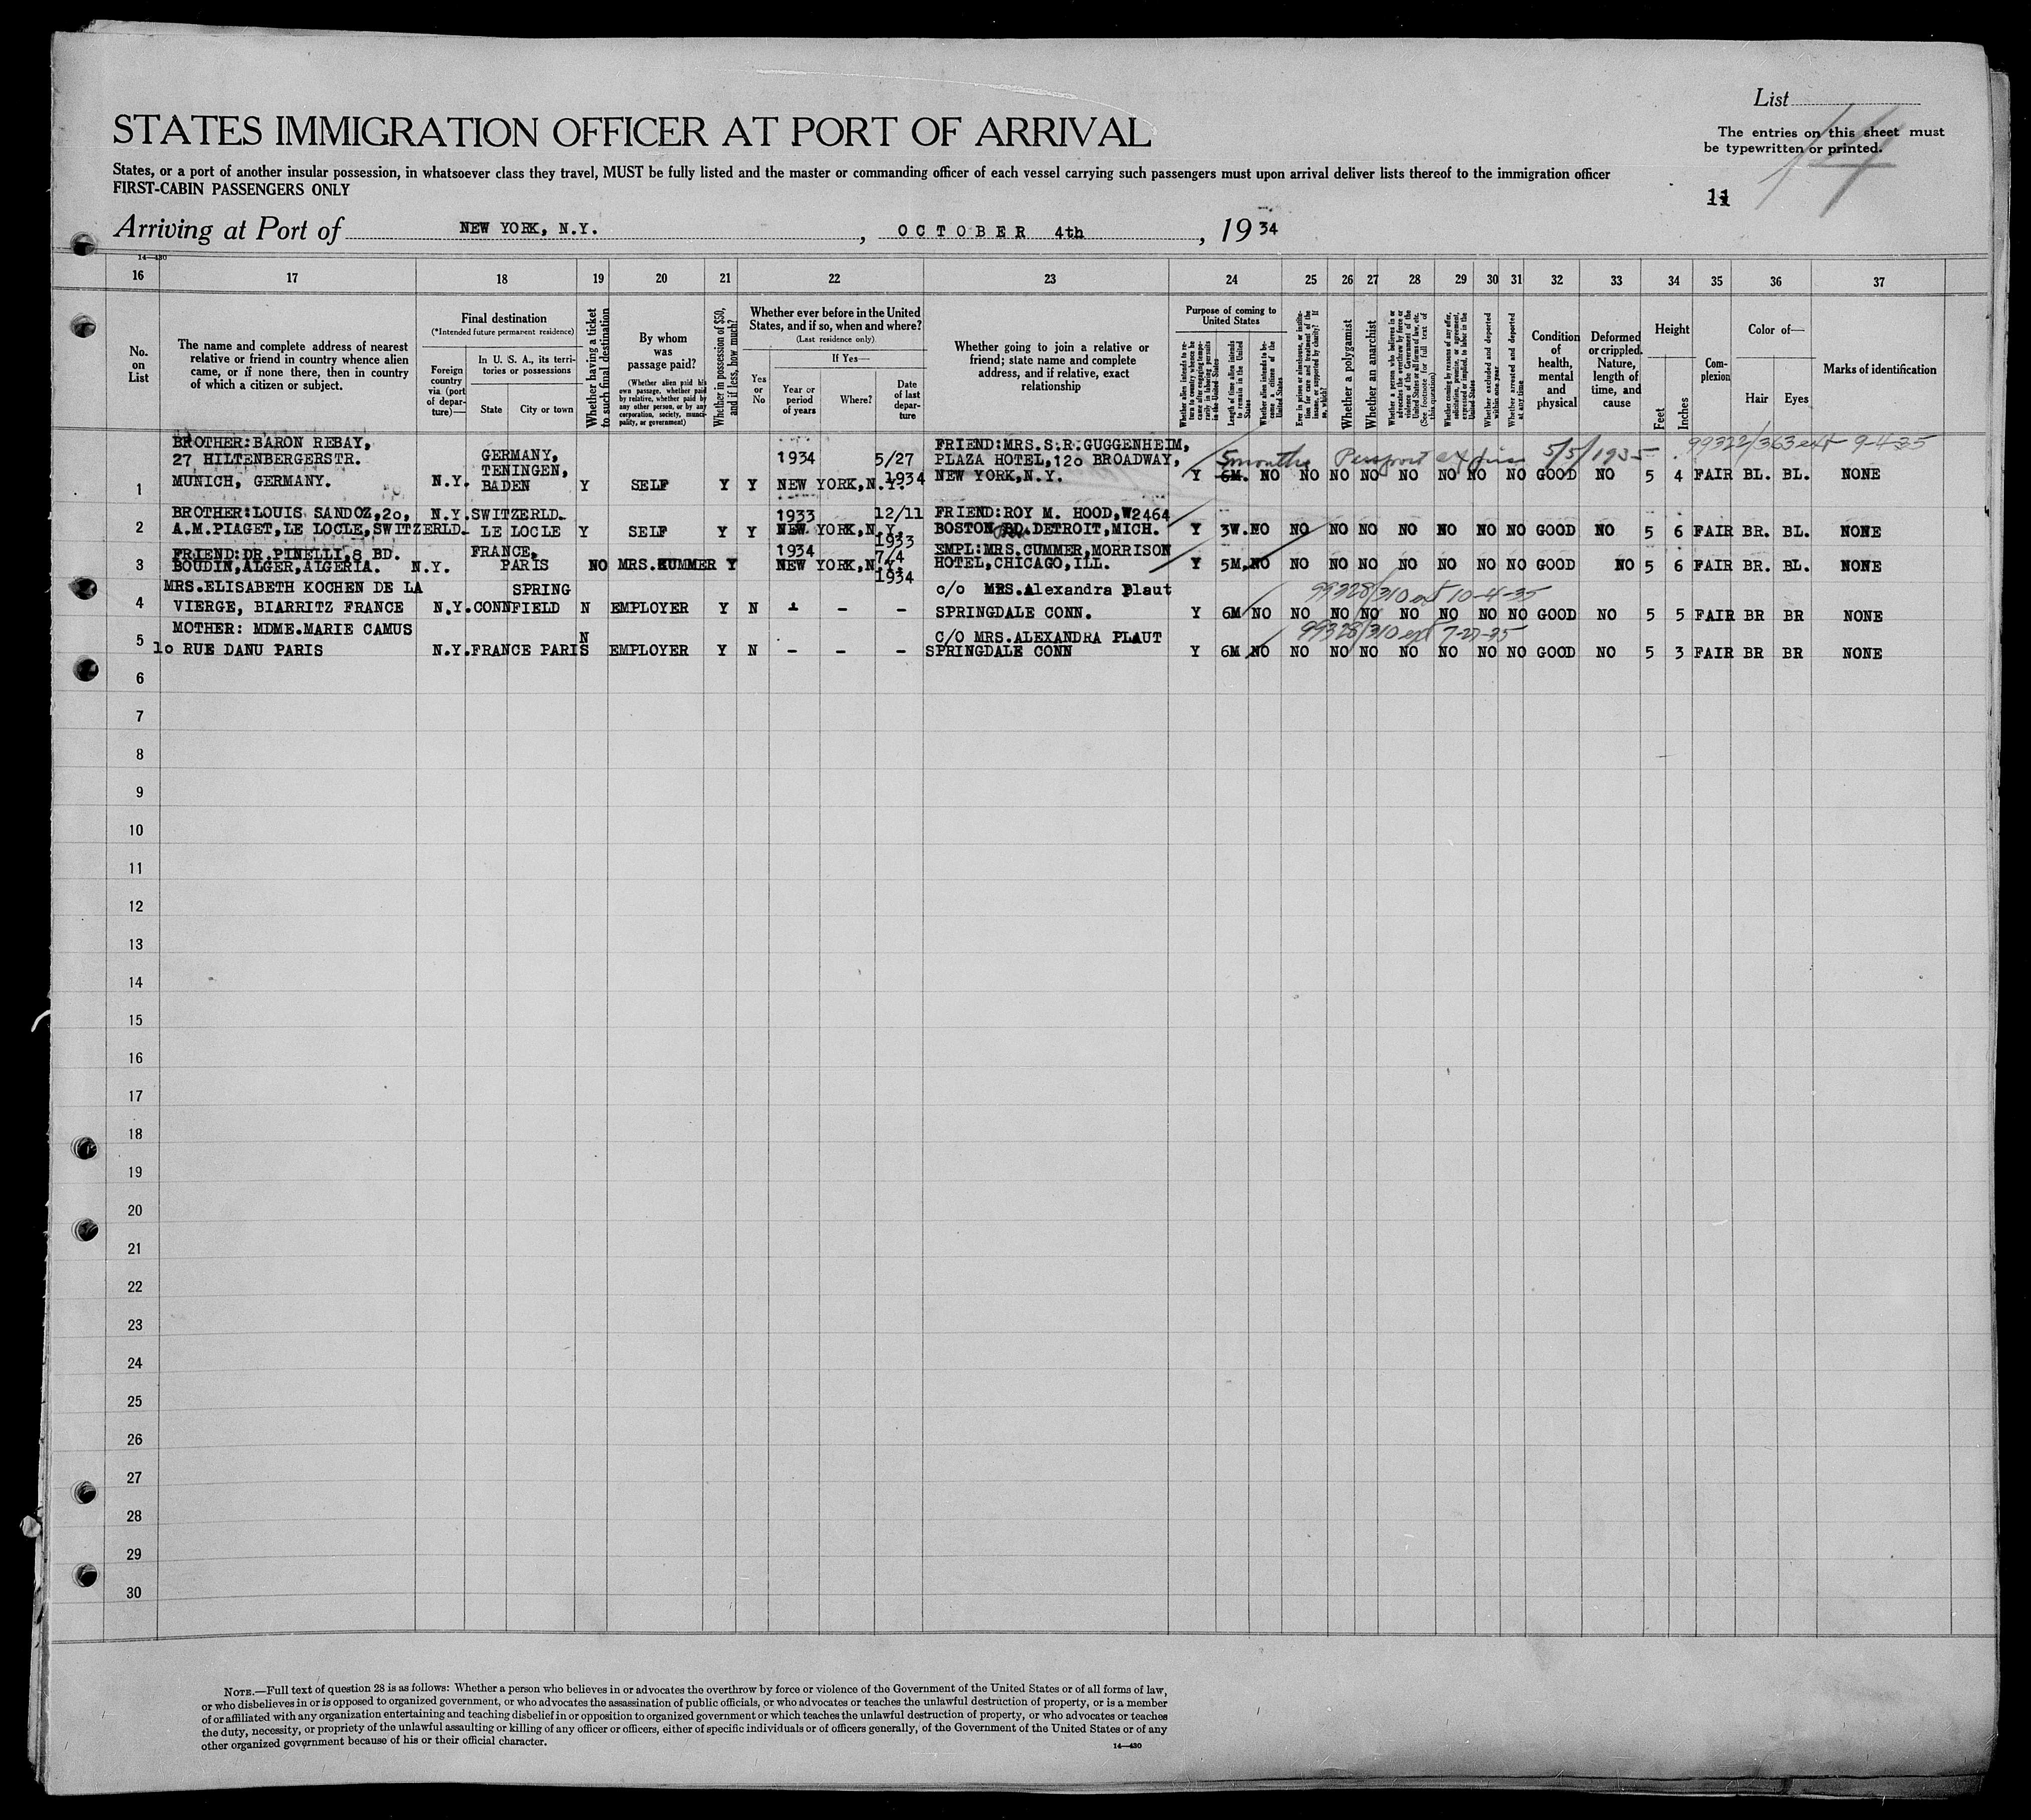 List
STATES IMMIGRATION OFFICER AT PORT OF ARRIVAL
The entries on this sheet must
be typewritten or printed.
14
States, or a port of another insular possession, in whatsoever class they travel, MUST be fully listed and the master or commanding officer of each vessel carrying such passengers must upon arrival deliver lists thereof to the immigration officer
FIRST-CABIN PASSENGERS ONLY
11
Arriving at Port of NEW YORK, N.Y. , OCTOBER 4th , 1934
14—430
16 17 18 19 20 21 22 23 24 25 26 27 28 29 30 31 32 33 34 35 36 37
No. on List
The name and complete address of nearest relative or friend in country whence alien came, or if none there, then in country of which a citizen or subject.
Final destination
(*Intended future permanent residence)
Foreign country via (port of departure)—
In U. S. A., its territories or possessions
State
City or town
Whether having a ticket to such final destination
By whom was passage paid?
(Whether alien paid his own passage, whether paid by relative, whether paid by any other person, or by any corporation, society, municipality, or government)
Whether in possession of $50, and if less, how much?
Whether ever before in the United States, and if so, when and where?
(Last residence only)
Yes or No
If Yes—
Year or period of years
Where?
Date of last departure
Whether going to join a relative or friend; state name and complete address, and if relative, exact relationship
Purpose of coming to United States
Whether alien intends to return to country whence he came after engaging temporarily in laboring pursuits in the United States
Length of time alien intends to remain in the United States
Whether alien intends to become a citizen of the United States
Ever in prison or almshouse, or institution for care and treatment of the insane, or supported by charity? If so, which?
Whether a polygamist
Whether an anarchist
Whether a person who believes in or advocates the overthrow by force or violence of the Government of the United States or all forms of law, etc. (See footnote for full text of this question)
Whether coming by reason of any offer, solicitation, promise, or agreement, expressed or implied, to labor in the United States
Whether excluded and deported within one year
Whether arrested and deported at any time
Condition of health, mental and physical
Deformed or crippled. Nature, length of time, and cause
Height
Feet
Inches
Complexion
Color of—
Hair
Eyes
Marks of identification
BROTHER:BARON REBAY, GERMANY, FRIEND:MRS.S.R.GUGGENHEIM, 99322/363 ext 9-4-35
27 HILTENBERGERSTR. TENINGEN, 1934 5/27 PLAZA HOTEL,12o BROADWAY, 5 months Passport expires 5/5/1935
1 MUNICH, GERMANY. N.Y. BADEN Y SELF Y Y NEW YORK,N.Y. 1934 NEW YORK,N.Y. Y 6M. NO NO NO NO NO NO NO NO GOOD NO 5 4 FAIR BL. BL. NONE
BROTHER:LOUIS SANDOZ,2o, N.Y. SWITZERLD. 1933 12/11 FRIEND:ROY M. HOOD,W2464
2 A.M.PIAGET,LE LOCLE,SWITZERLD. LE LOCLE Y SELF Y Y NEW YORK,N.Y. 1933 BOSTON BD. DETROIT,MICH. Y 3W. NO NO NO NO NO NO NO NO GOOD NO 5 6 FAIR BR. BL. NONE
FRIEND:DR.PINELLI,8 BD. FRANCE, 1934 7/4 EMPL:MRS.CUMMER,MORRISON
3 BOUDIN,ALGER,ALGERIA. N.Y. PARIS NO MRS.KUMMER Y NEW YORK,N.Y. 1934 HOTEL,CHICAGO,ILL. Y 5M. NO NO NO NO NO NO NO NO GOOD NO 5 6 FAIR BR. BL. NONE
MRS.ELISABETH KOCHEN DE LA SPRING c/o MRS.Alexandra Plaut 99328/310 ext 10-4-35
4 VIERGE, BIARRITZ FRANCE N.Y. CONN FIELD N EMPLOYER Y N - - - SPRINGDALE CONN. Y 6M NO NO NO NO NO NO NO NO GOOD NO 5 5 FAIR BR BR NONE
MOTHER: MDME.MARIE CAMUS C/O MRS.ALEXANDRA PLAUT 99328/310 ext 7-27-35
5 1o RUE DANU PARIS N.Y. FRANCE PARIS N EMPLOYER Y N - - - SPRINGDALE CONN Y 6M NO NO NO NO NO NO NO NO GOOD NO 5 3 FAIR BR BR NONE
6
7
8
9
10
11
12
13
14
15
16
17
18
19
20
21
22
23
24
25
26
27
28
29
30
NOTE.—Full text of question 28 is as follows: Whether a person who believes in or advocates the overthrow by force or violence of the Government of the United States or of all forms of law,
or who disbelieves in or is opposed to organized government, or who advocates the assassination of public officials, or who advocates or teaches the unlawful destruction of property, or is a member
of or affiliated with any organization entertaining and teaching disbelief in or opposition to organized government or which teaches the unlawful destruction of property, or who advocates or teaches
the duty, necessity, or propriety of the unlawful assaulting or killing of any officer or officers, either of specific individuals or of officers generally, of the Government of the United States or of any
other organized government because of his or their official character.
14—430